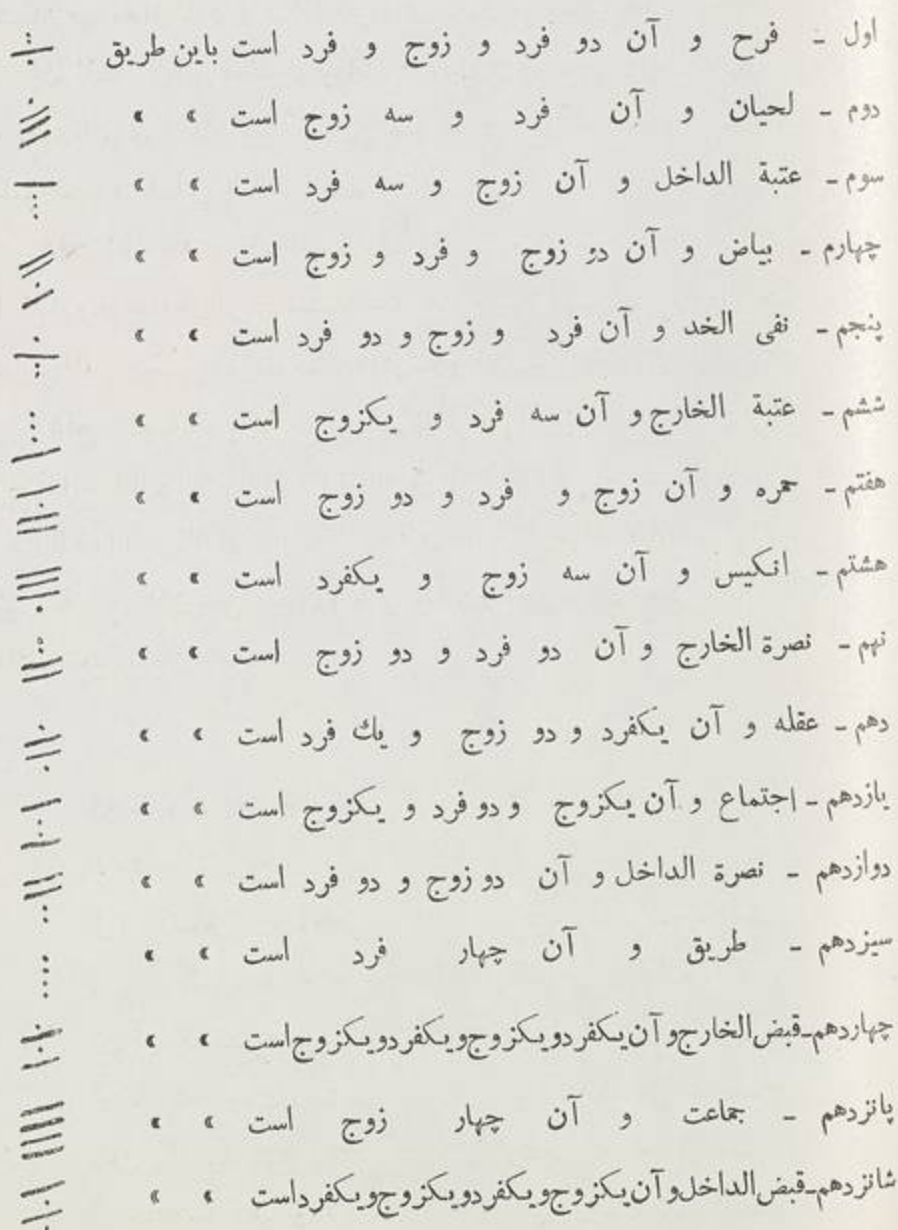 اول - فرح و آن دو فرد و زوج و فرد است باین طریق
دوم - لحیان و آن فرد و سه زوج است » »
سوم - عتبة الداخل و آن زوج و سه فرد است » »
چهارم - بیاض و آن دو زوج و فرد و زوج است » »
پنجم - نفی الخد و آن فرد و زوج و دو فرد است » »
ششم - عتبة الخارج و آن سه فرد و یکزوج است » »
هفتم - حمره و آن زوج و فرد و دو زوج است » »
هشتم - انکیس و آن سه زوج و یکفرد است » »
نهم - نصرة الخارج و آن دو فرد و دو زوج است » »
دهم - عقله و آن یکفرد و دو زوج و یك فرد است » »
یازدهم - اجتماع و آن یکزوج و دو فرد و یکزوج است » »
دوازدهم - نصرة الداخل و آن دو زوج و دو فرد است » »
سیزدهم - طریق و آن چهار فرد است » »
چهاردهم-قبض الخارج و آن یکفرد و یکزوج و یکفرد و یکزوج است » »
پانزدهم - جماعت و آن چهار زوج است » »
شانزدهم-قبض الداخل و آن یکزوج و یکفرد و یکزوج و یکفرد است » »